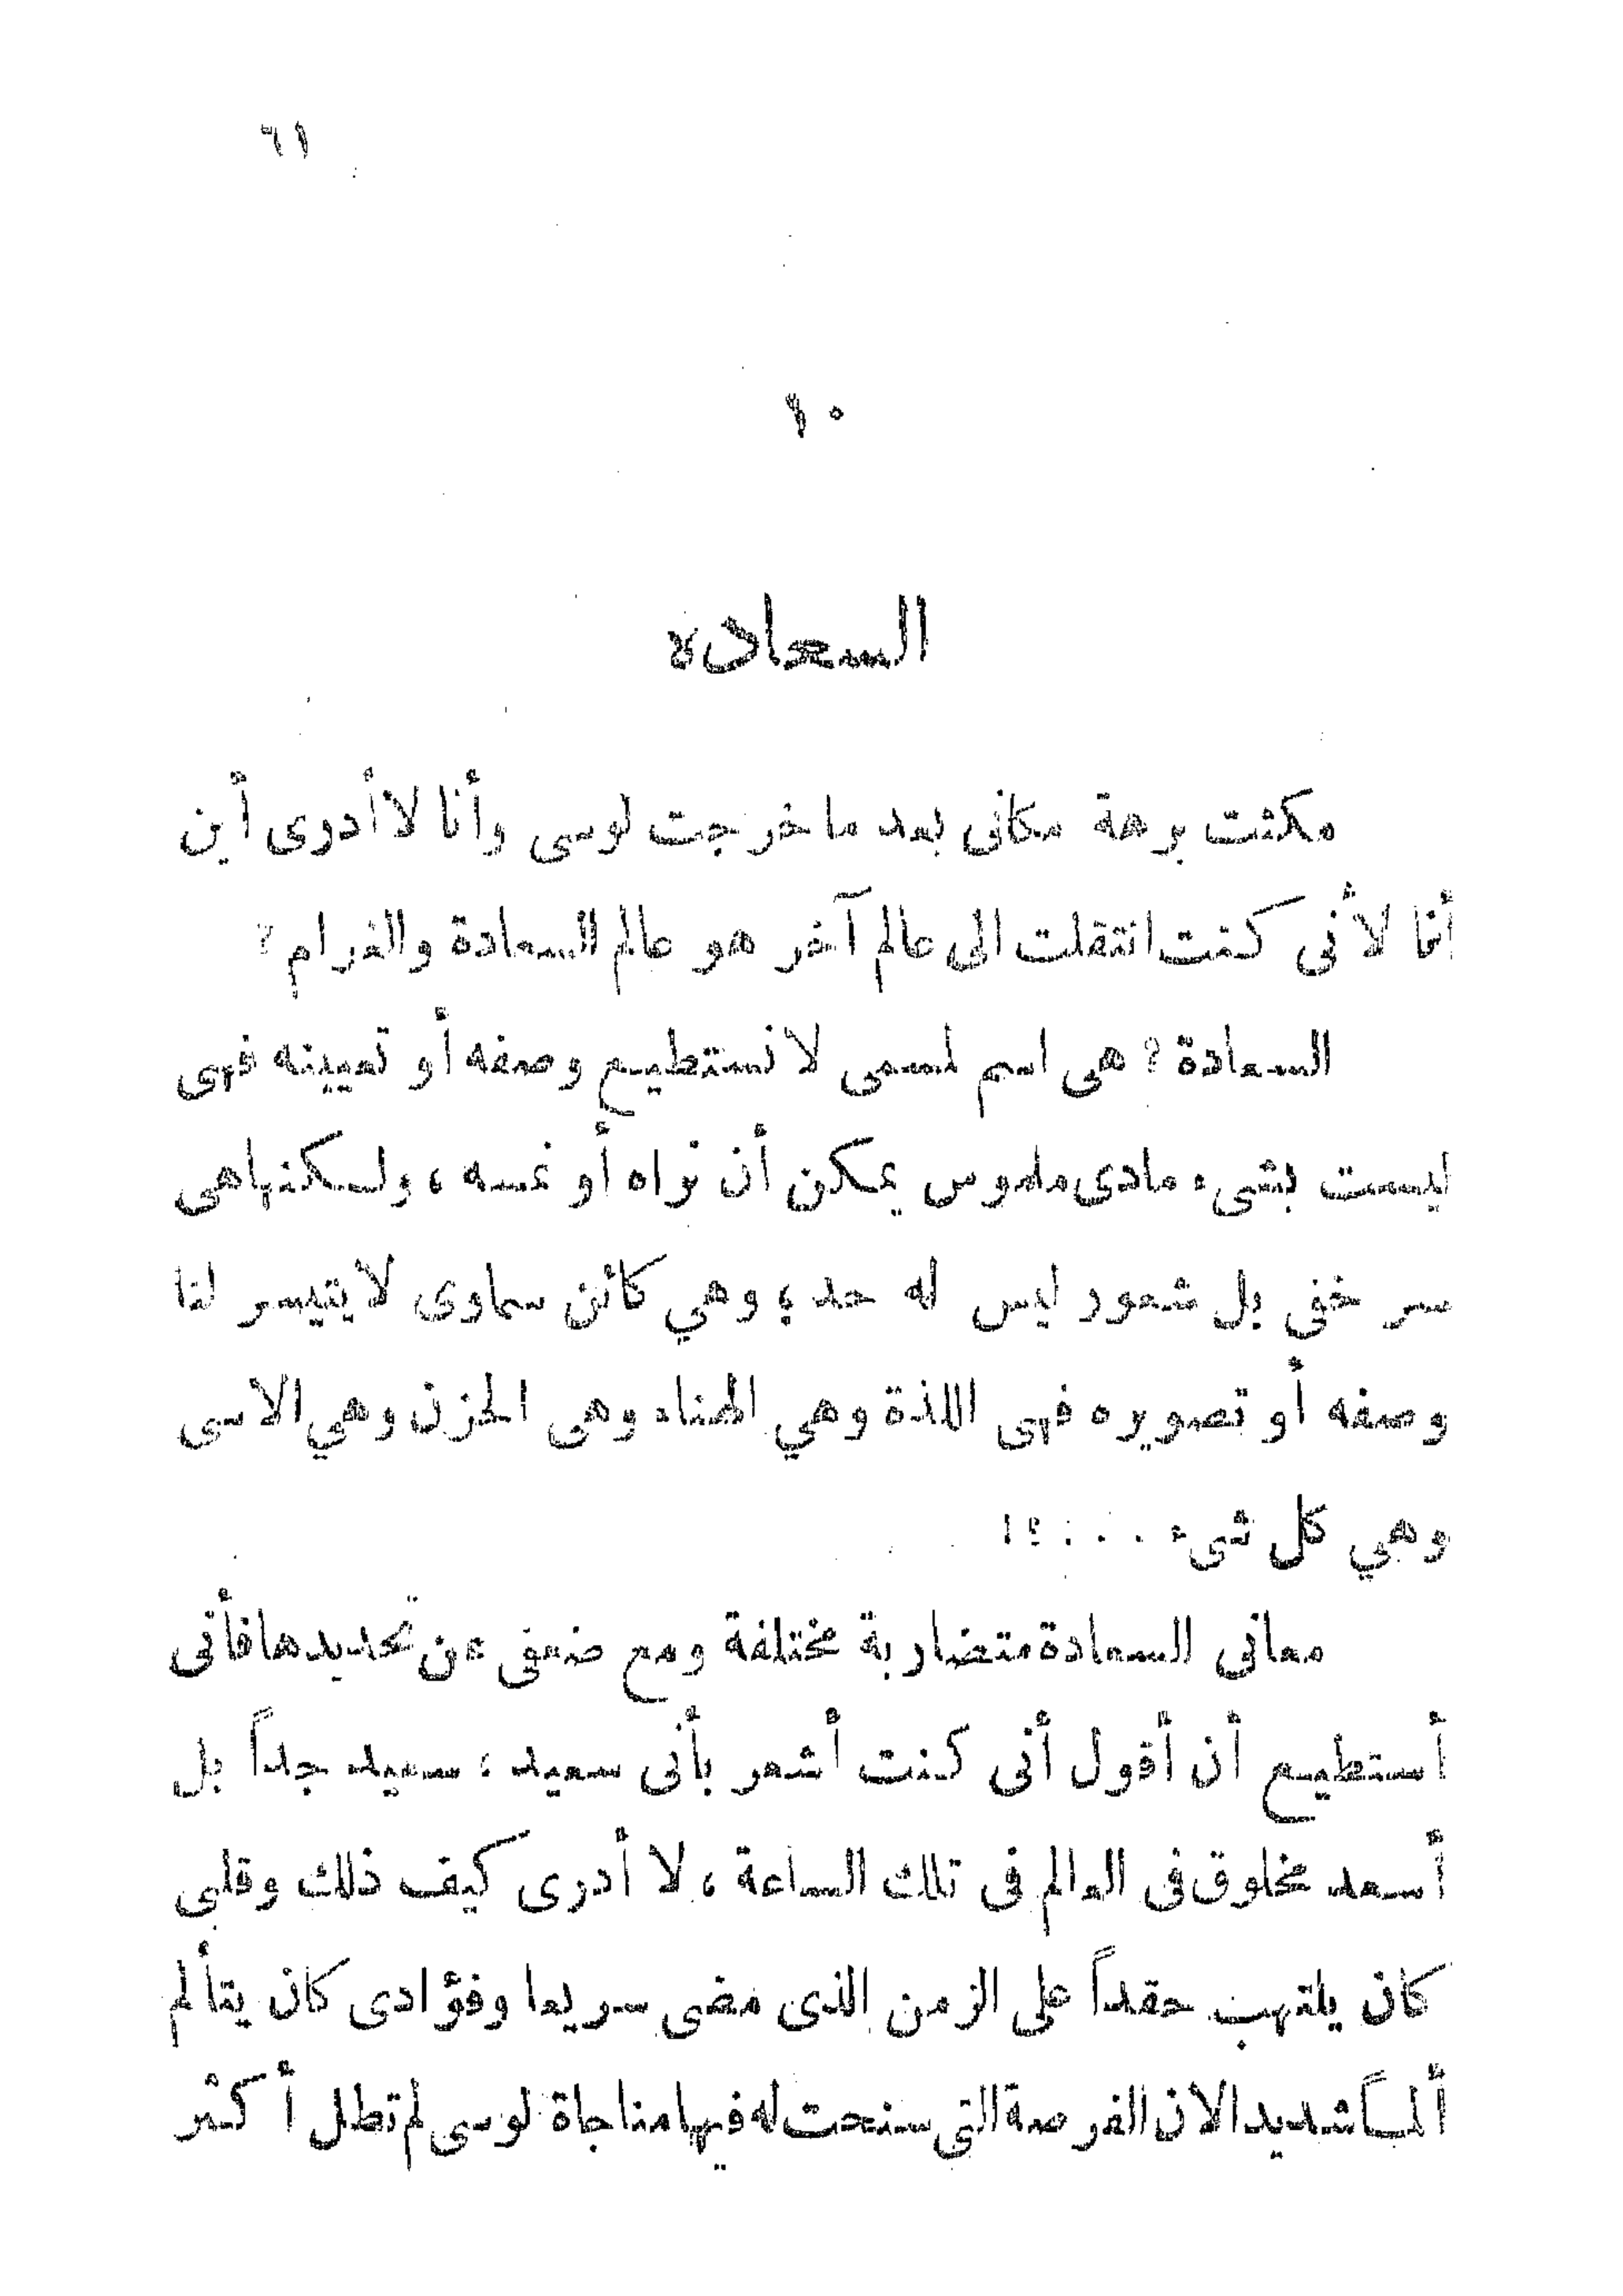 ٦١
١٠
السعادة
مكثت برهة مكانى بعد ما خرجت لوسى وأنا لا أدرى أين
أنا لأنى كنت انتقلت الى عالم آخر هو عالم السعادة والغرام ؟
السعادة ؟ هى اسم لمسمى لا نستطيع وصفه أو تعيينه فهى
ليست بشىء مادى ملموس يمكن أن نراه أو نمسه ، ولكنها هى
سر خفى بل شعور ليس له حد ؛ وهي كائن سماوى لا يتيسر لنا
وصفه أو تصويره فهى اللذة وهي الهناء وهى الحزن وهي الاسى
وهي كل شىء . . . . ؟!
معانى السعادة متضاربة مختلفة ومع ضعفى عن تحديدها فأنى
أستطيع أن أقول أنى كنت أشعر بأنى سعيد ؛ سعيد جداً بل
أسعد مخلوق فى العالم فى تلك الساعة ، لا أدرى كيف ذلك وقلبى
كان يلتهب حقداً على الزمن الذى مضى سريعا وفؤادى كان يتألم
ألماً شديدا لان الفرصة التى سنحت له فيها مناجاة لوسى لم تطل أكثر